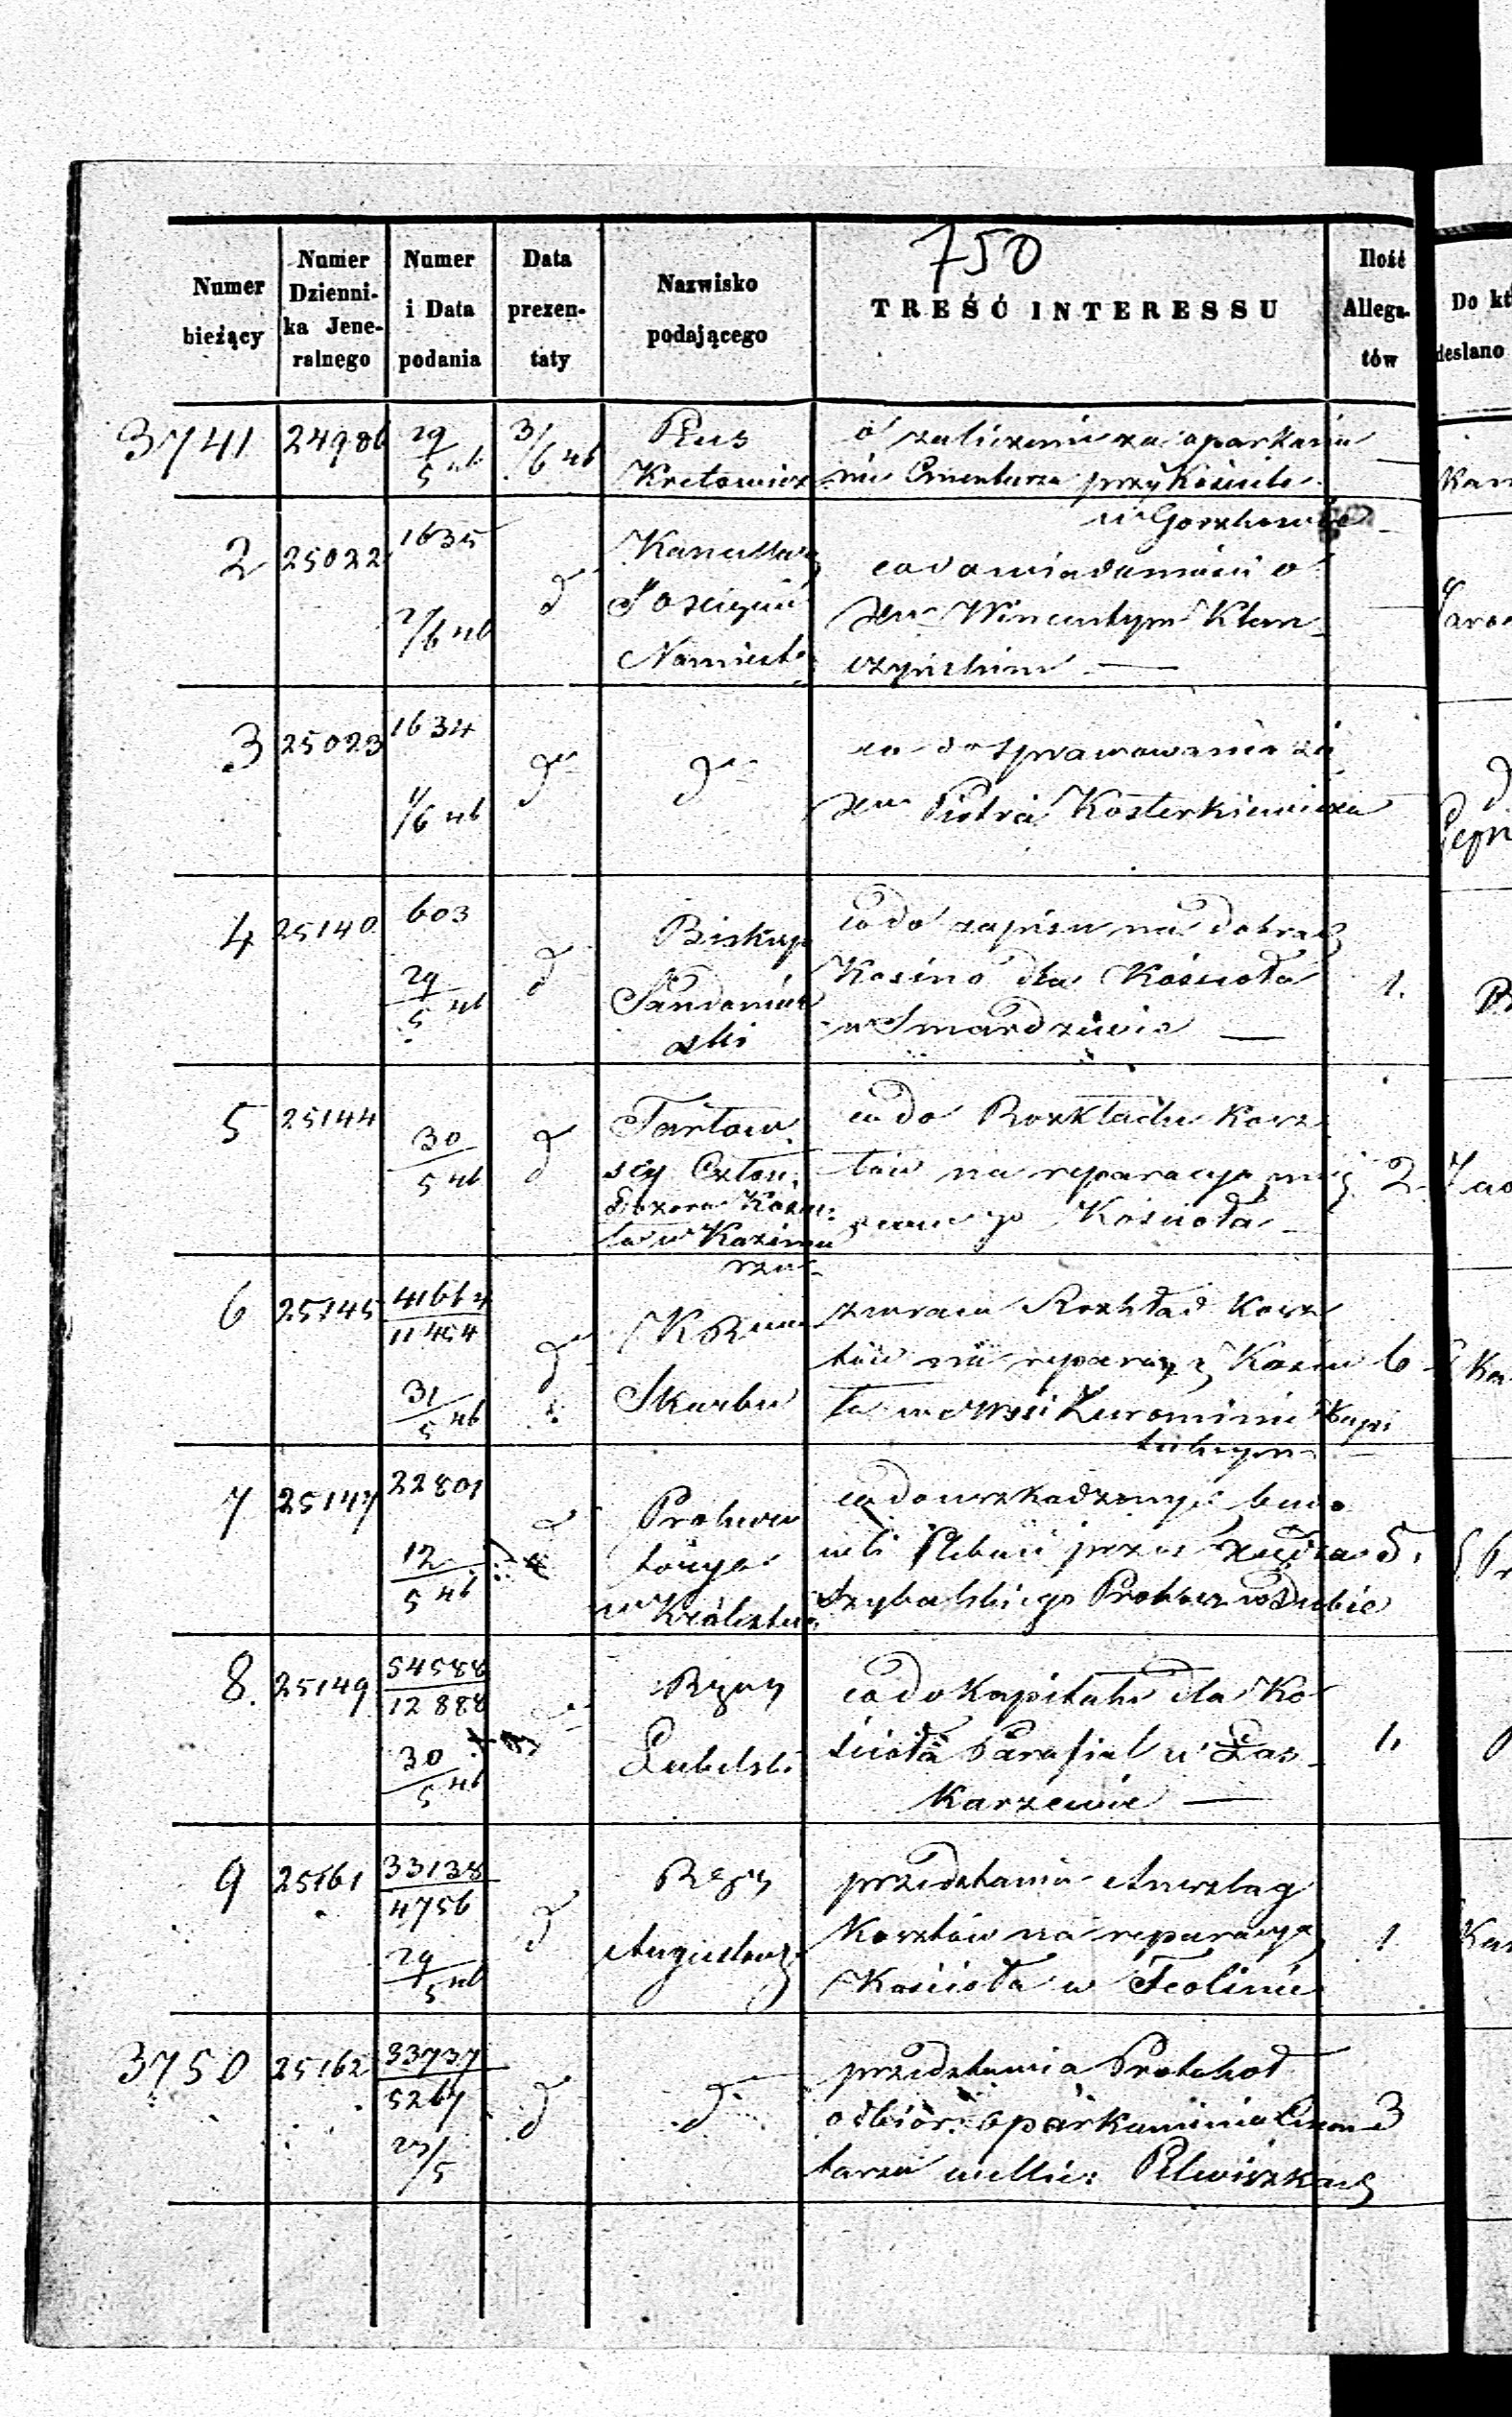 750
Numer bieżący
Numer Dzienni- ka Jene- ralnego
Numer i Data podania
Data prezen- taty
Nazwisko podającego
TREŚĆ INTERESSU
Ilość Allega- tów
Do kt
desłano
3741 24986 29/5 46 3/6 46
Pius
Kretowicz
o zaliczenie za oparkanie
nie Cmentarza przy Kościele
w Gorzkowie
Kan
2 25022 1635 2/6 46 d
Kancellarz
Xożęcia
Namiest.
co do wiadomości o
Xu Wincentym Klem
czyńskim —
3 25023 1634 1/6 46 d d
co do sprawowania się
Xa Piotra Kosterkiewicza
4 25140 603 29/5 46 d
Biskup
Sandomier
ski
co do zapisu na dobrach
Kosino dla Kościoła
w Smardzewie —
1.
5 25144 30/5 46 d
Tartow.
scy Człon.
Dozoru Kościo:
ła w Kazimie
rzu
co do Rozkładu Kosz
tów na reparacyę miej
scowego Kościoła
2
6 25145 41664/11454 31/5 46 d
K R
Skarbu
zwraca Rozkład kosz
tów na reparacyę Kościo
ła w wsi Żurominie Kapi
tulnym
6
7 25147 22801 12/5 46
Prokura
torya
w Królestwie
co do uszkodzonych budo
wli Plebanii przez Xiędza
Szybalskiego Probosz w Dubie
5.
8. 25149 54588/12888 30/5 46
Rząd
Lubelski
co do Kapitału dla Ko
ścioła Parafial w Łas
karzewie —
1.
9 25161 33138/4756 29/5 46 d
Rząd
Augustows
przedstawia Anszlag
Kosztów na reparacyą
Kościoła w Teolinie
1
3750 25162 33737/5267 27/5 d d
przedstawia Protokoł
odbior: oparkanienia Cmen
tarza Pilwiszkach
3